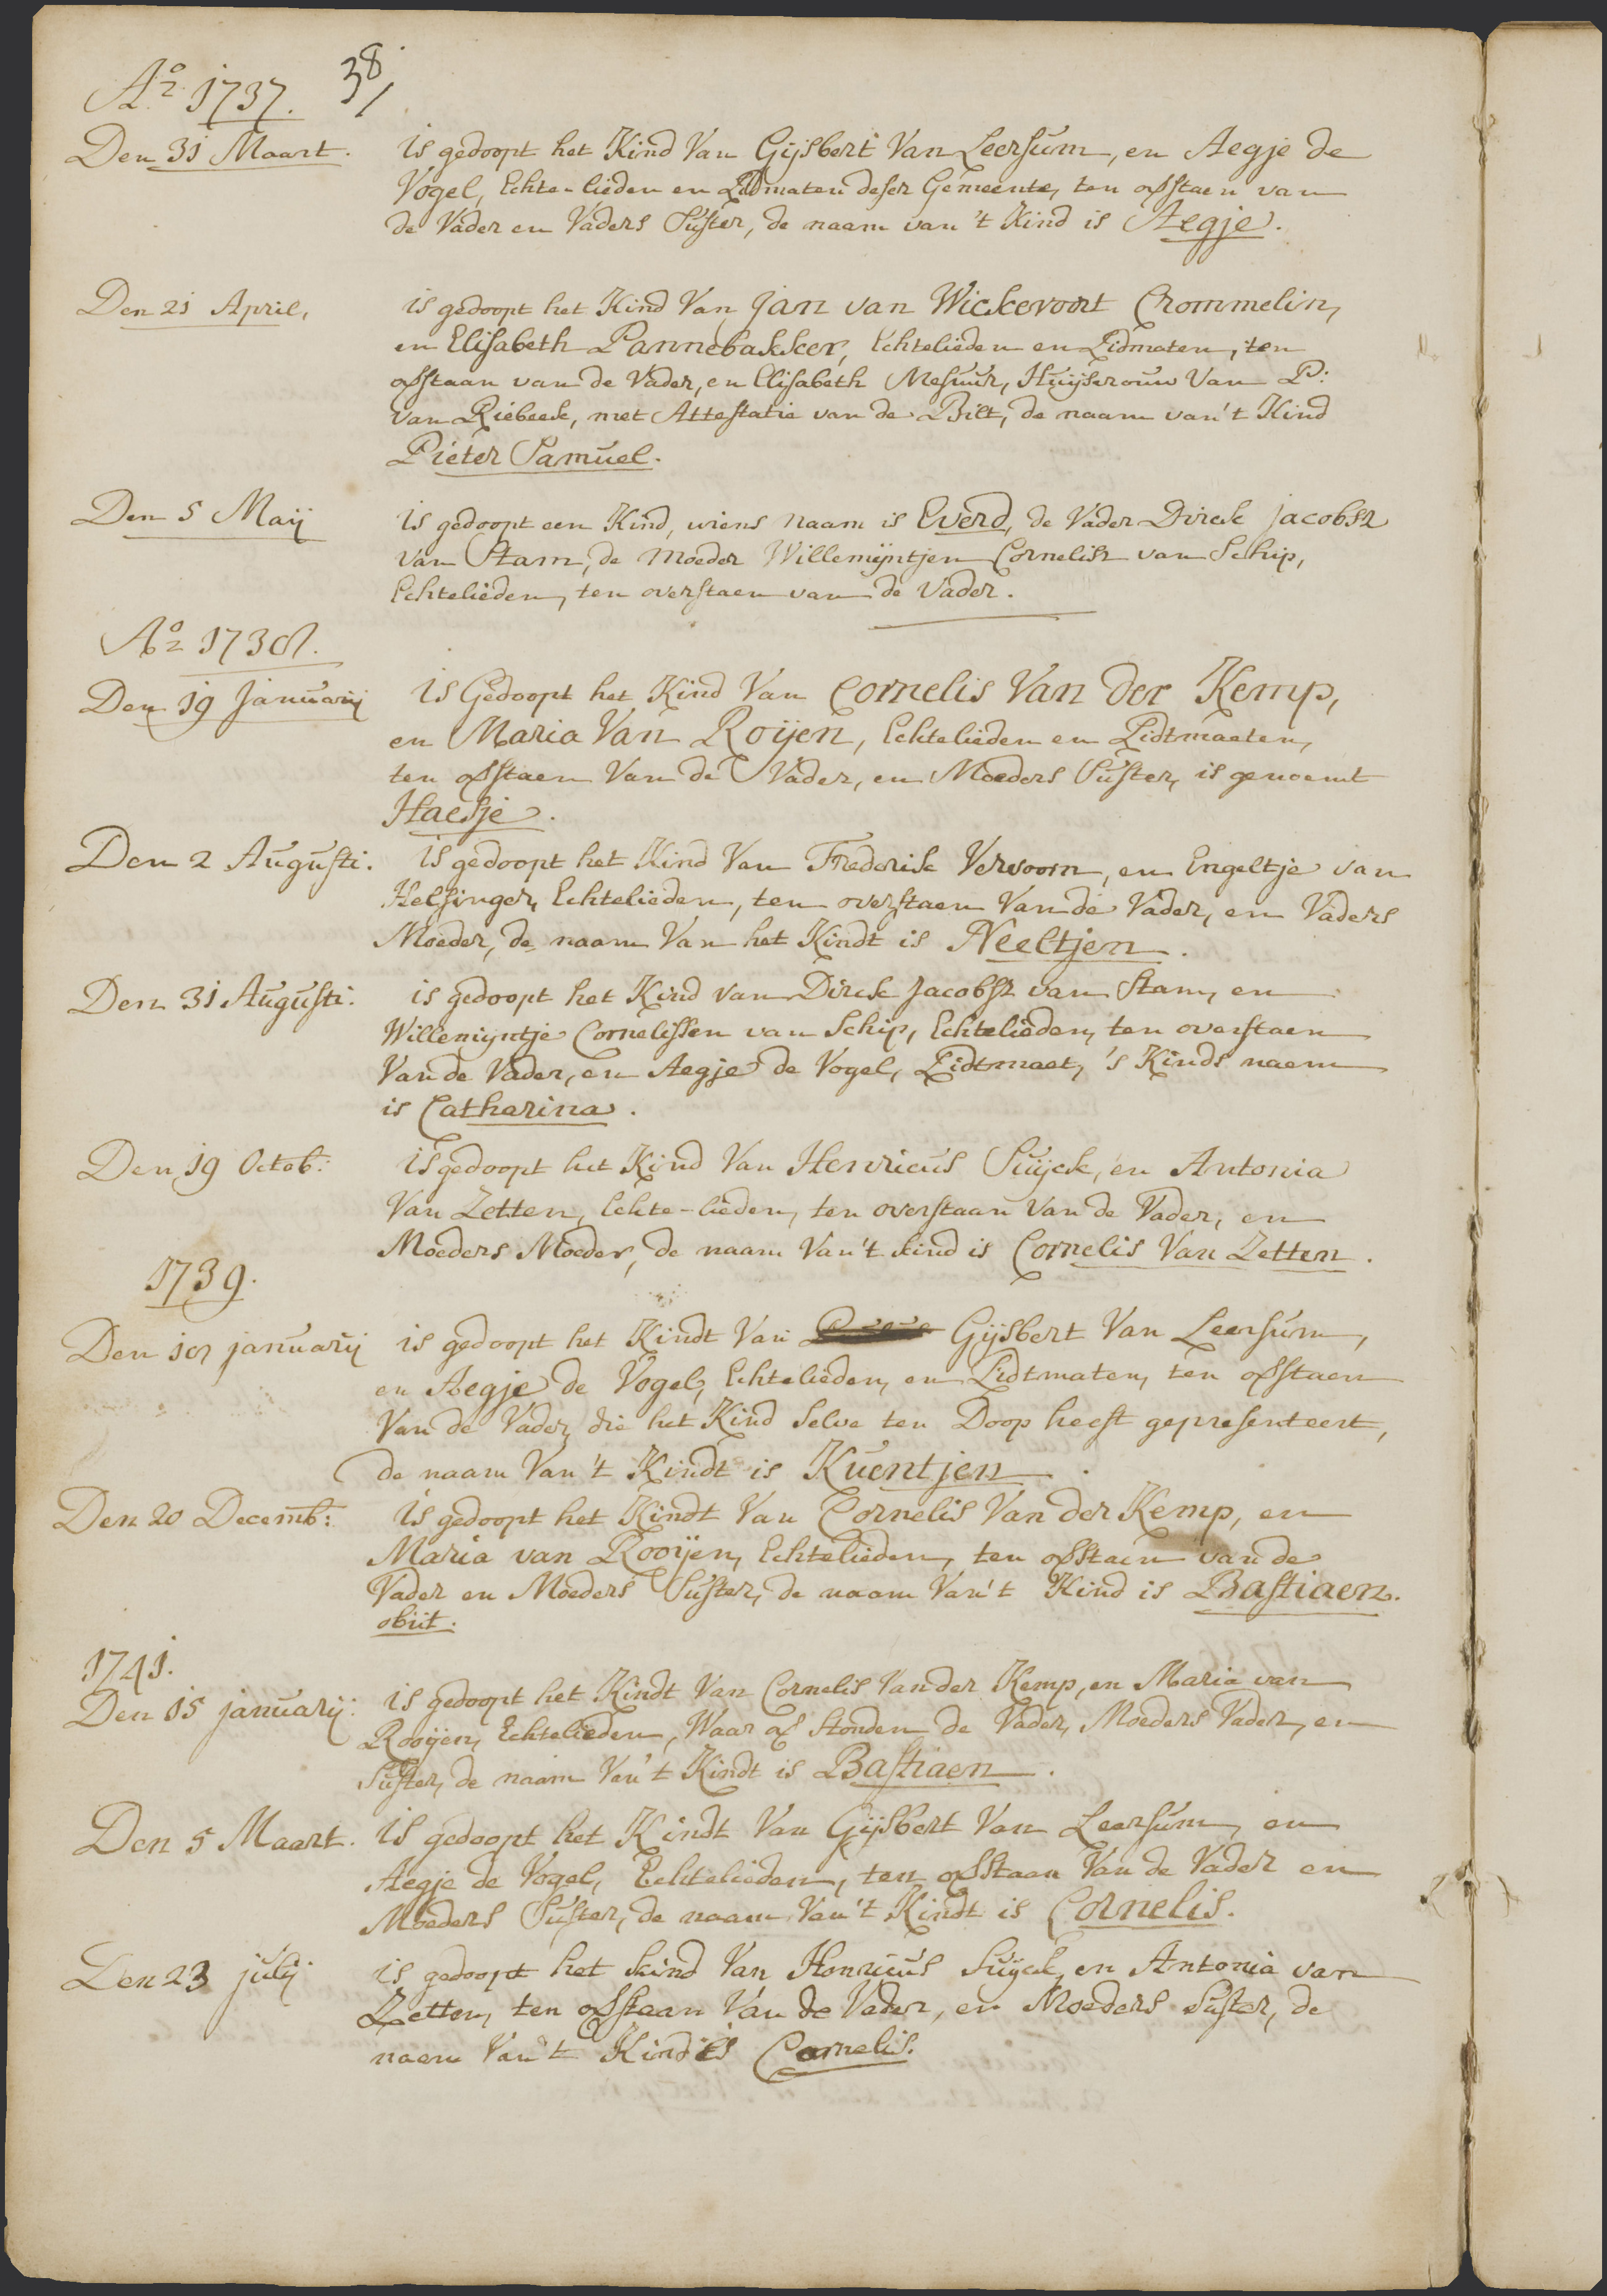 Aº 1737. 38/
Den 31 Maart. Is gedoopt het Kind Van Gijsbert Van Leersum, en Aegje de
Vogel, Echte-lieden en Lidmaten deser Gemeente, ten offstaen van
de Vader en Vaders Suster, de naam van 't Kind is Aegje.
Den 21 April, is gedoopt het Kind Van Jan van Wickevoort Crommelin,
en Elisabeth Pannebakker, Echtelieden en Lidmaten, ten
offstaan van de Vader, en Elisabeth Mesuur, Huijsvrouw Van P:
van Riebeeck, met Attestatie van de Bilt, de naam van 't Kind
Pieter Samuel.
Den 5 Maij Is gedoopt een Kind, wiens naam is Everd, de Vader Dirck Jacobsz
van Stam, de Moeder Willemijntjen Cornelisz van Schip,
Echtelieden, ten overstaen van de Vader.
Aº 1738.
Den 19 Januarij Is Gedoopt het Kind Van Cornelis Van der Kemp,
en Maria Van Roijen, Echtelieden en Lidtmaeten,
ten offstaen Van de Vader, en Moeders Suster, is genoemt
Haesje.
Den 2 Augusti. Is gedoopt het Kind Van Frederik Vervoorn, en Engeltje van
Helsinger, Echtelieden, ten overstaen Van de Vader, en Vaders
Moeder, de naam Van het Kindt is Neeltjen.
Den 31 Augusti. is gedoopt het Kind van Dirck Jacobsz van Stam, en
Willemijntje Cornelissen van Schip, Echtelieden, ten overstaen
Van de Vader, en Aegje de Vogel, Lidtmaet, 's Kinds naem
is Catharina.
Den 19 Octob: is gedoopt het Kind Van Henricus Suijck, en Antonia
Van Zetten, Echte-lieden, ten overstaan Van de Vader, en
Moeders Moeder, de naam Van 't kind is Cornelis Van Zetten.
1739.
Den 18 januarij is gedoopt het Kindt Van Gijsbert Van Leersum,
en Aegje de Vogel, Echtelieden, en Lidtmaten, ten offstaen
Van de Vader, die het Kind selve ten Doop heeft gepresenteert,
de naam Van 't Kindt is Kuentjen.
Den 20 Decemb: Is gedoopt het Kindt Van Cornelis Van der Kemp, en
Maria van Rooijen, Echtelieden, ten offstaen van de
Vader en Moeders Suster, de naam Van 't Kind is Bastiaen.
obiit.
1741.
Den 15 januarij: is gedoopt het Kindt Van Cornelis Van der Kemp, en Maria van
Rooijen, Echtelieden, Waar off stonden de Vader, Moeders Vader, en
Suster, de naam Van 't Kindt is Bastiaen.
Den 5 Maart. Is gedoopt het Kindt Van Gijsbert Van Leersum, en
Aegje de Vogel, Echtelieden, ten offstaan Van de Vader en
Moeders Suster, de naam Van 't Kindt is Cornelis.
Den 23 julij is gedoopt het kind Van Henricus Suijck, en Antonia van
Zetten, ten offstaan Van de Vader, en Moeders Suster, de
naem Van 't Kind is Cornelis.